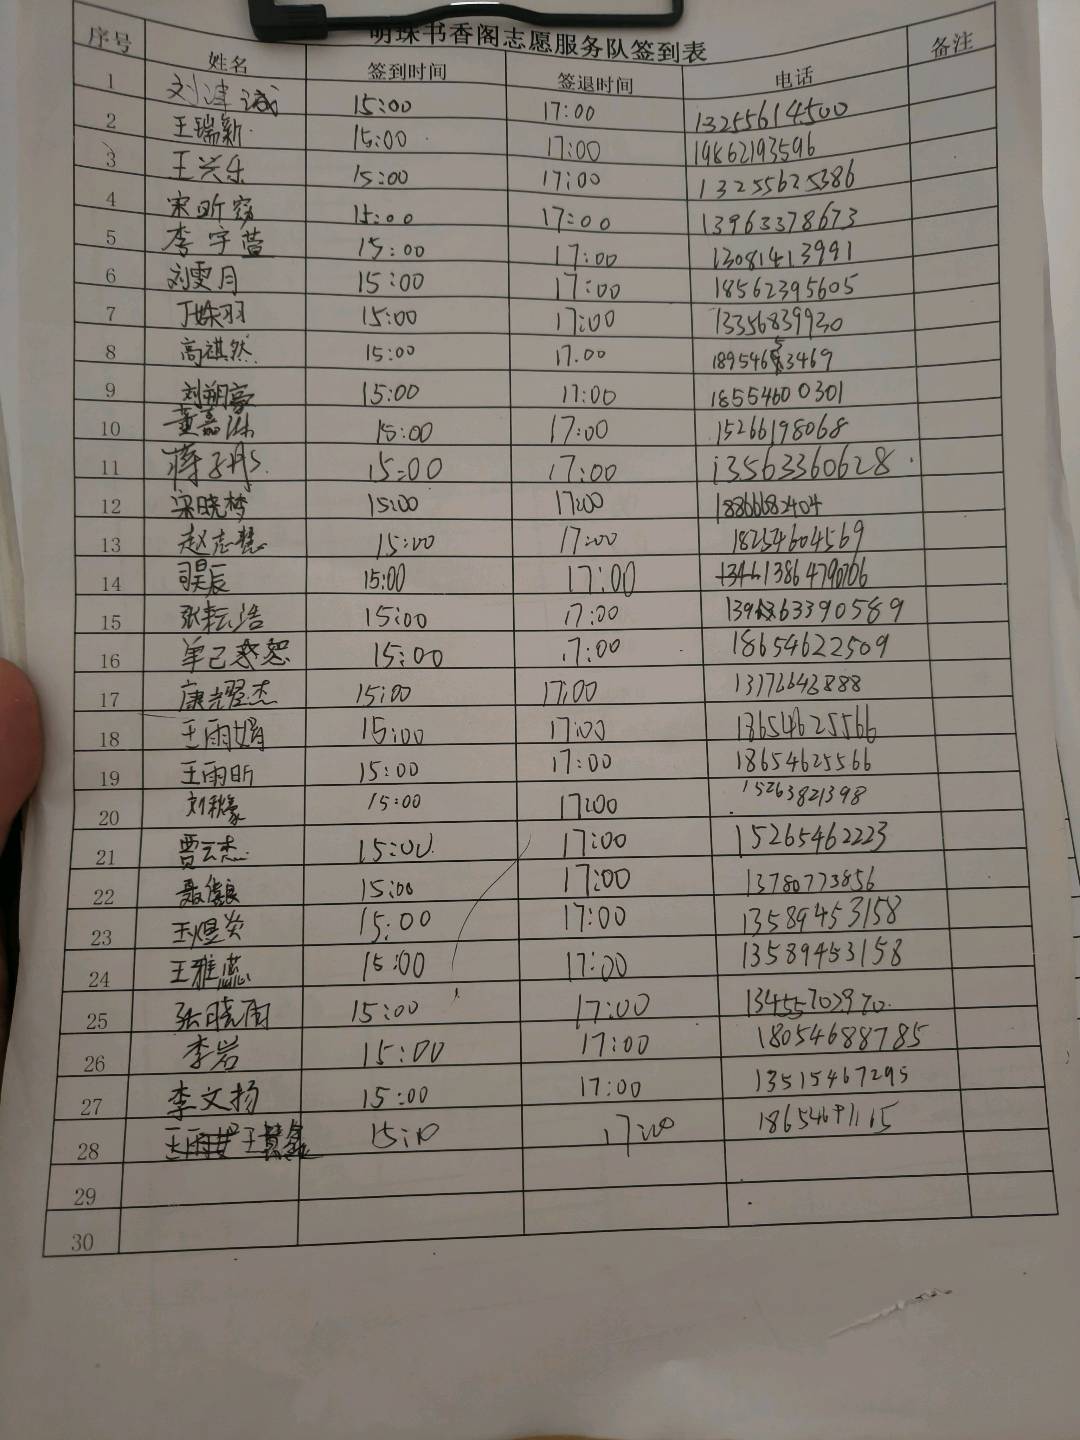 明珠书香阁志愿服务队签到表
序号 姓名 签到时间 签退时间 电话 备注
1 刘津诚 15:00 17:00 13255614500
2 王瑞新 15:00 17:00 19862193596
3 王兴乐 15:00 17:00 13255625386
4 宋昕窈 15:00 17:00 13963378673
5 李宇萱 15:00 17:00 13081413991
6 刘雯月 15:00 17:00 18562395605
7 丁姝羽 15:00 17:00 13356839930
8 高祺然 15:00 17.00
9 刘朔豪 15:00 17:00 18554600301
10 董嘉琳 15:00 17:00 15266198068
11 蒋子彤 15:00 17:00 13563360628
12 宋晓梦 15:00 17:00 18866682404
13 赵志慧 15:00 17:00 18254604569
14 司昊辰 15:00 17:00 13864790706
15 张耘浩 15:00 17:00
16 单己惑恕 15:00 17:00 18654622509
17 康耀杰 15:00 17:00
18 王雨娟 15:00 17:00 18654625566
19 王雨昕 15:00 17:00 18654625566
20 15:00 17:00 15263821398
21 贾云杰 15:00 17:00 15265462223
22 15:00 17:00 13780773856
23 王煜炎 15:00 17:00 13589453158
24 王雅蕊 15:00 17:00 13589453158
25 张晓雨 15:00 17:00 13455702970
26 李岩 15:00 17:00 18054688785
27 李文扬 15:00 17:00 13515467295
28 15:10 17:00
29
30